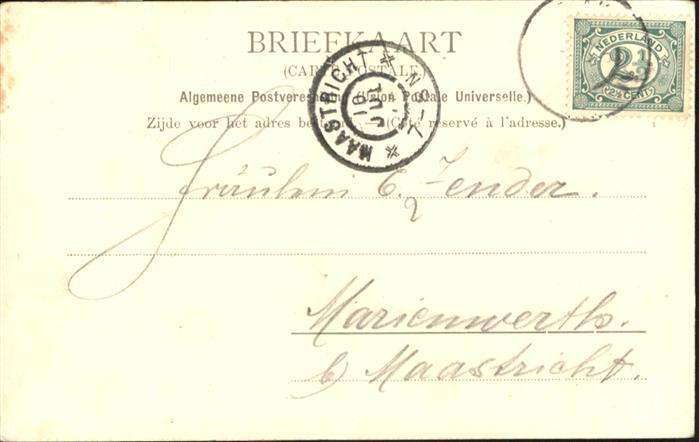 BRIEFKAART
(CARTE POSTALE)
Algemeene Postvereeniging (Union Postale Universelle.)
Zijde voor het adres bestemd. — (Côté réservé à l'adresse.)
NEDERLAND
2½
(2½ CENT)
MAASTRICHT
Fräulein E. Zender.
Marienwerth.
b/ Maastricht.